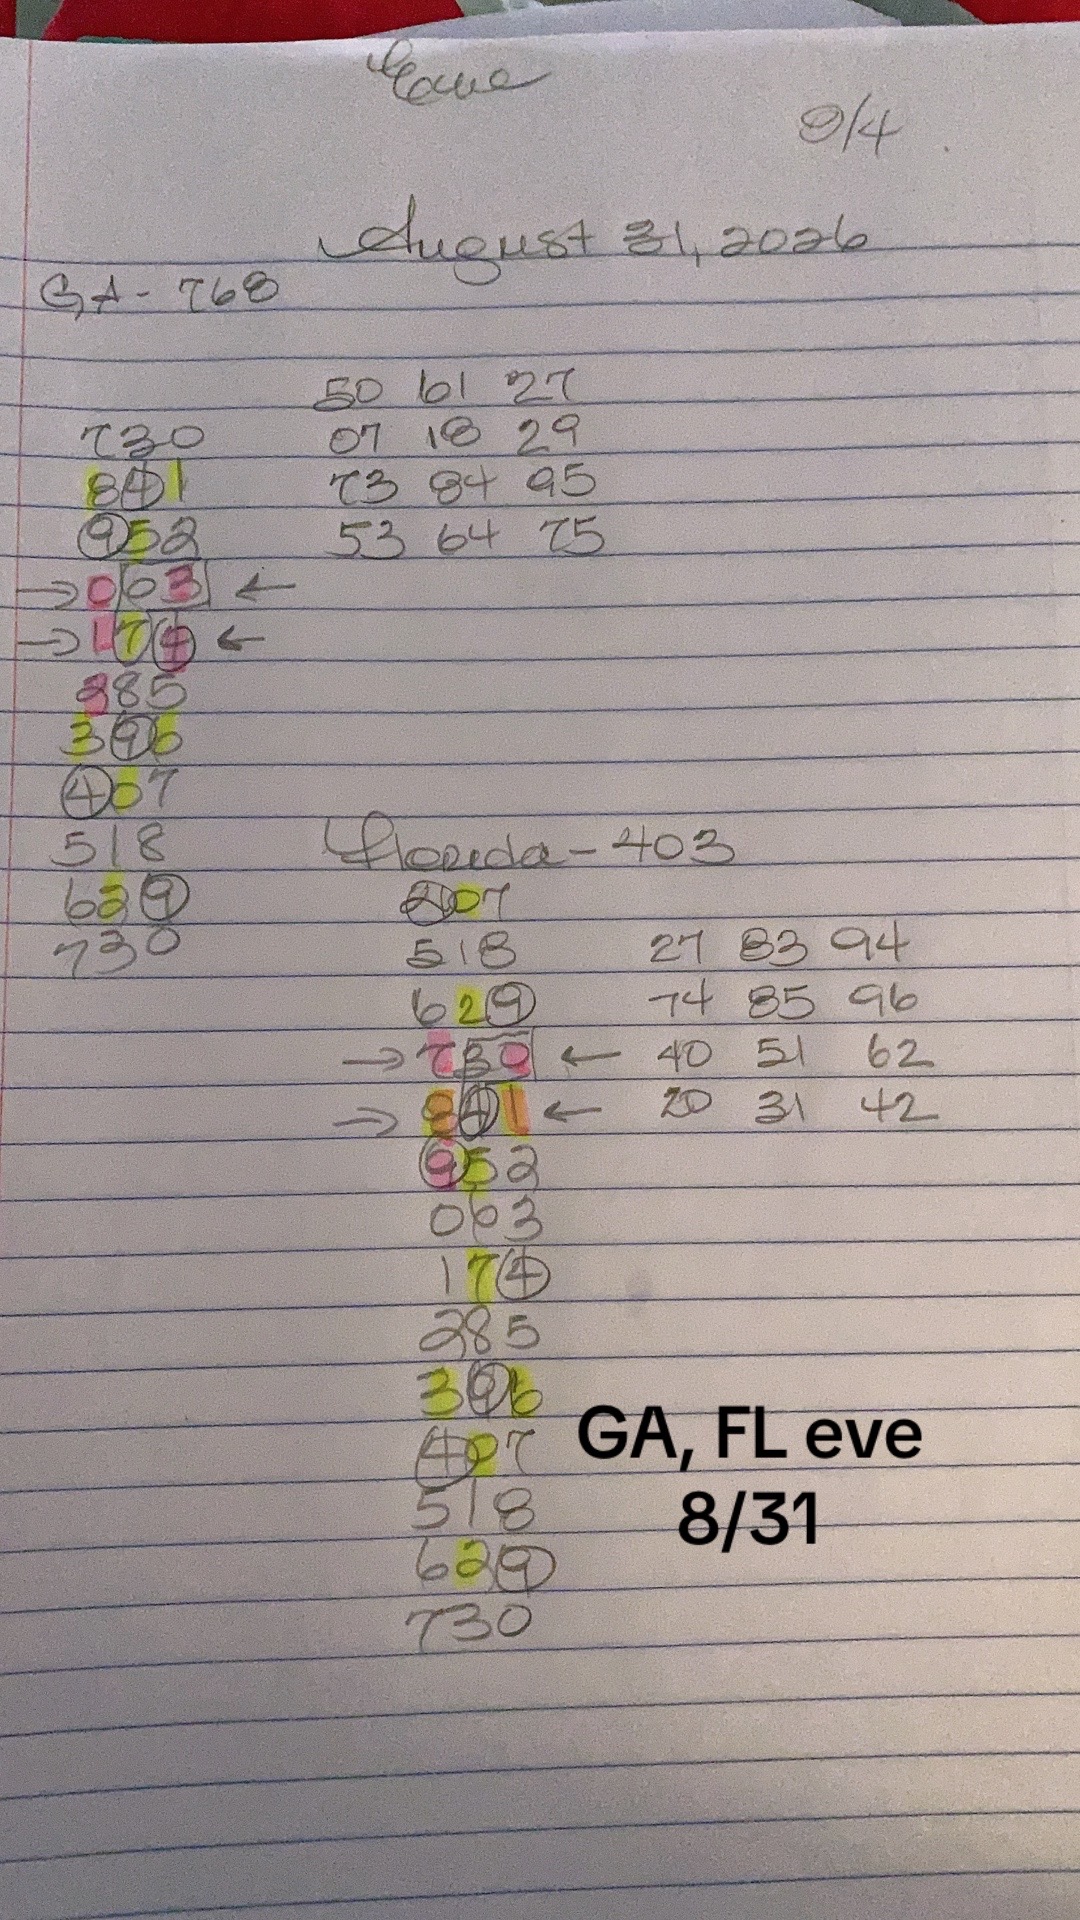 Eave
9/4
August 31, 2026
GA- 768
50 61 27
730 07 18 29
841 73 84 95
952 53 64 75
→063 ←
→174 ←
285
396
407
518 Florida-403
629 207
730 518 27 83 94
629 74 85 96
→730 ← 40 51 62
→841 ← 20 31 42
952
063
174
285
396
407
518
629
730
GA, FL eve
8/31